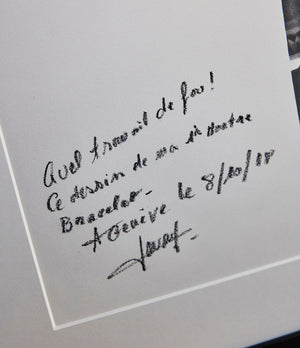 Quel travail de fou!
Ce dessin de ma montre
Bracelet -
A Genève le 8/10/18